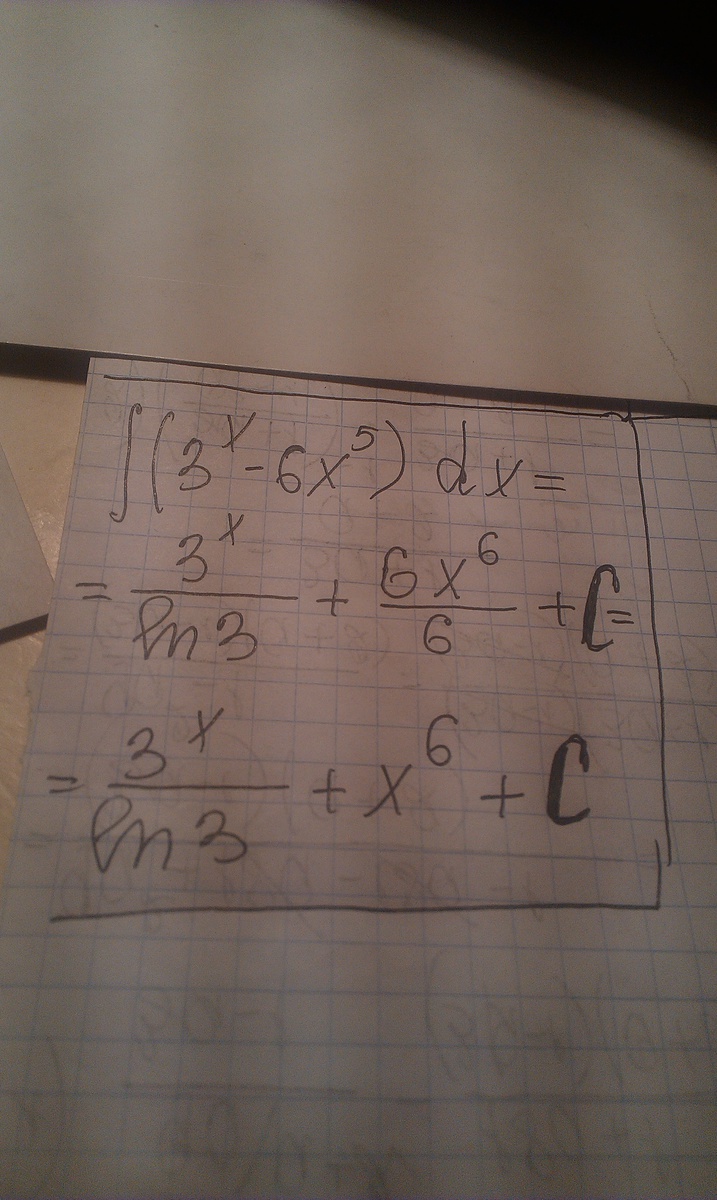 ∫(3^x - 6x^5) dx =
= 3^x/ln 3 + 6x^6/6 + C =
= 3^x/ln 3 + x^6 + C